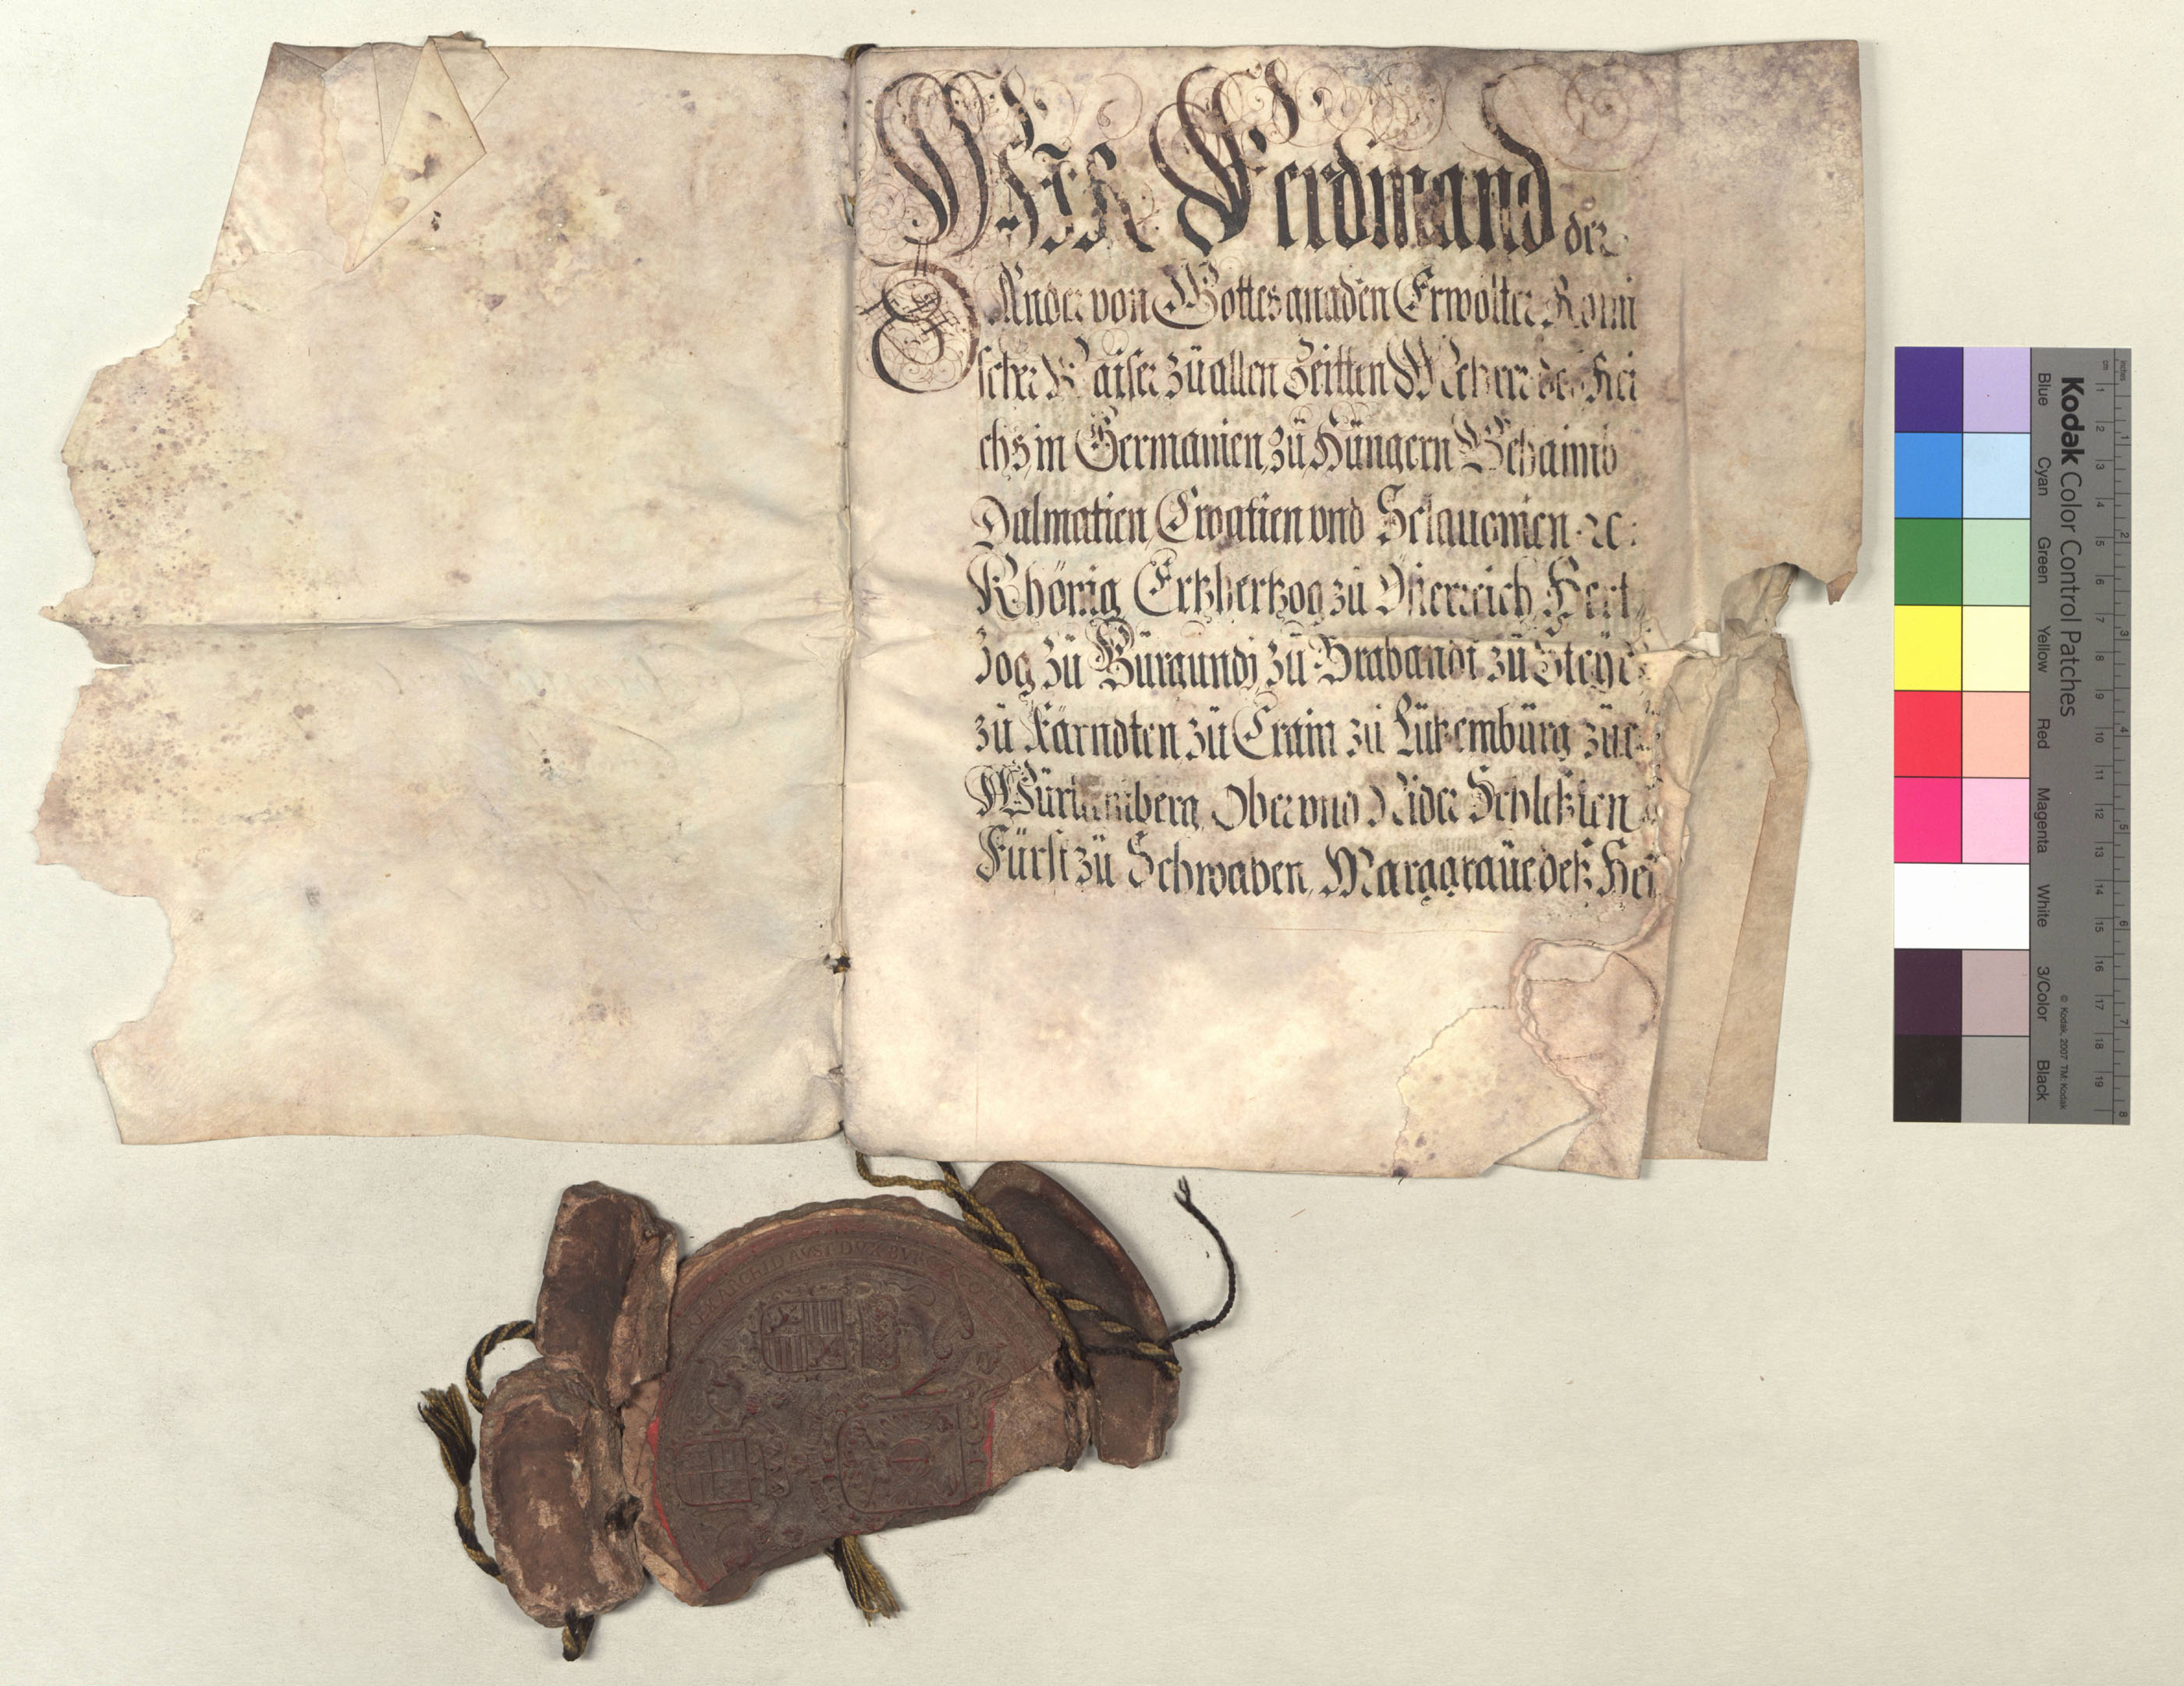 WIR Ferdinand der
Ander von Gottes gnaden Erwölter Römi
scher Kaiser zü allen Zeitten Mehrer des Rei
chs, in Germanien, zü Hüngern Behaimb
Dalmatien, Croatien vnd Sclauonien ꝛc:
Khönig, Ertzhertzog zü Österreich, Hert
zog zü Burgundj, zü Brabandt zü Steyr
zü Kärndten zü Crain zü Lützembürg, züe
Würtemberg, Ober vnd Nider Schlesien
Fürst zü Schwaben, Marggraüe deß Hei
ARCHID AVST DVX BVRG
Kodak Color Control Patches
Blue Cyan Green Yellow Red Magenta White 3/Color Black
© Kodak, 2007 TM: Kodak
inches 1 2 3 4 5 6 7 8
cm 1 2 3 4 5 6 7 8 9 10 11 12 13 14 15 16 17 18 19